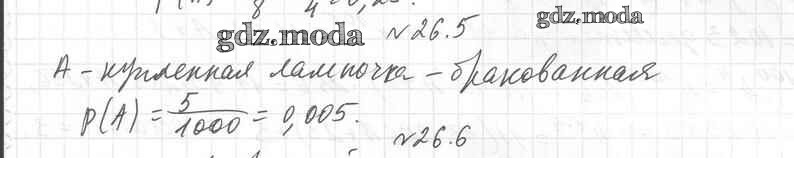 gdz.moda
gdz.moda
№26.5
A - купленная лампочка - бракованная
P(A) = 5/1000 = 0,005.
№26.6